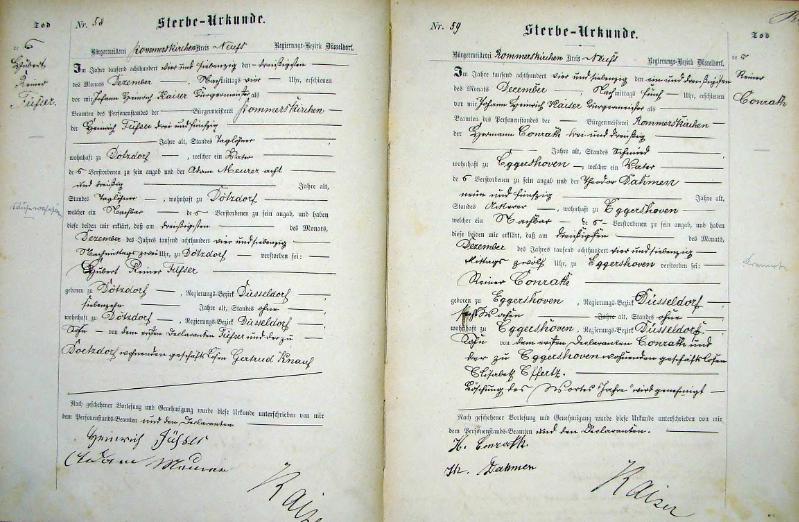 Tod
Nr. 58
Sterbe-Urkunde.
Bürgermeisterei Rommerskirchen Kreis Neuss Regierungs-Bezirk Düsseldorf.
Hubert
Reiner
Füsser.
Im Jahre tausend achthundert vier und siebenzig den dreißigsten
des Monats Dezember Nachmittags vier Uhr, erschienen
vor mir Johann Heinrich Kaiser Bürgermeister als
Beamten des Personenstandes der Bürgermeisterei Rommerskirchen
der Heinrich Füsser drei und fünfzig
Jahre alt, Standes Taglöhner
wohnhaft zu Dötzdorf, welcher ein Vater
des Verstorbenen zu sein angab und der Adam Meurer acht
und dreißig Jahre alt,
Standes Taglöhner, wohnhaft zu Dötzdorf
welcher ein Nachbar des Verstorbenen zu sein angab, und haben
diese beiden mir erklärt, daß am dreißigsten des Monats
Dezember des Jahres tausend achthundert vier und siebenzig
Nachmittags zwei Uhr, zu Dötzdorf verstorben sei:
Hubert Reiner Füsser
geboren zu Dötzdorf, Regierungs-Bezirk Düsseldorf
siebenzehn Jahre alt, Standes ohne
wohnhaft zu Dötzdorf, Regierungs-Bezirk Düsseldorf
Sohn von dem ersten Declaranten Füsser und der zu
Doetzdorf wohnenden geschäftslosen Gertrud Knauf
Nach geschehener Vorlesung und Genehmigung wurde diese Urkunde unterschrieben von mir
dem Personenstands-Beamten und den Declaranten
Heinrich Füsser
Adam Meurer
Kaiser
Nr. 59
Sterbe-Urkunde.
Tod
Bürgermeisterei Rommerskirchen Kreis Neuss Regierungs-Bezirk Düsseldorf.
Reiner
Conrath
Im Jahre tausend achthundert vier und siebenzig den ein und dreißigsten
des Monats Dezember Nachmittags fünf Uhr, erschienen
vor mir Johann Heinrich Kaiser Bürgermeister als
Beamten des Personenstandes der Bürgermeisterei Rommerskirchen
der Hermann Conrath drei und dreißig
Jahre alt, Standes Schmied
wohnhaft zu Eggershoven, welcher ein Vater
des Verstorbenen zu sein angab und der Theodor Dahmen
neun und fünfzig Jahre alt,
Standes Ackerer, wohnhaft zu Eggershoven
welcher ein Nachbar des Verstorbenen zu sein angab, und haben
diese beiden mir erklärt, daß am dreißigsten des Monats
Dezember des Jahres tausend achthundert vier und siebenzig
Mittags zwölf Uhr, zu Eggershoven verstorben sei:
Reiner Conrath
geboren zu Eggershoven, Regierungs-Bezirk Düsseldorf
sechs Wochen Jahre alt, Standes ohne
wohnhaft zu Eggershoven, Regierungs-Bezirk Düsseldorf
Sohn von dem ersten Declaranten Conrath und
der zu Eggershoven wohnenden geschäftslosen
Elisabeth Effertz.
Löschung des Wortes "Jahre" wird genehmigt
Nach geschehener Vorlesung und Genehmigung wurde diese Urkunde unterschrieben von mir
dem Personenstands-Beamten und den Declaranten.
H. Conrath
Th. Dahmen
Kaiser